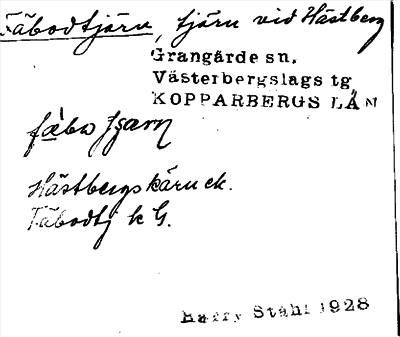 Fäbodtjärn, tjärn vid Hästberg
Grangärde sn.
Västerbergslags tg
KOPPARBERGS LÄN
Hästbergskärn ek.
Fäbodtj k G.
Harry Ståhl 1928